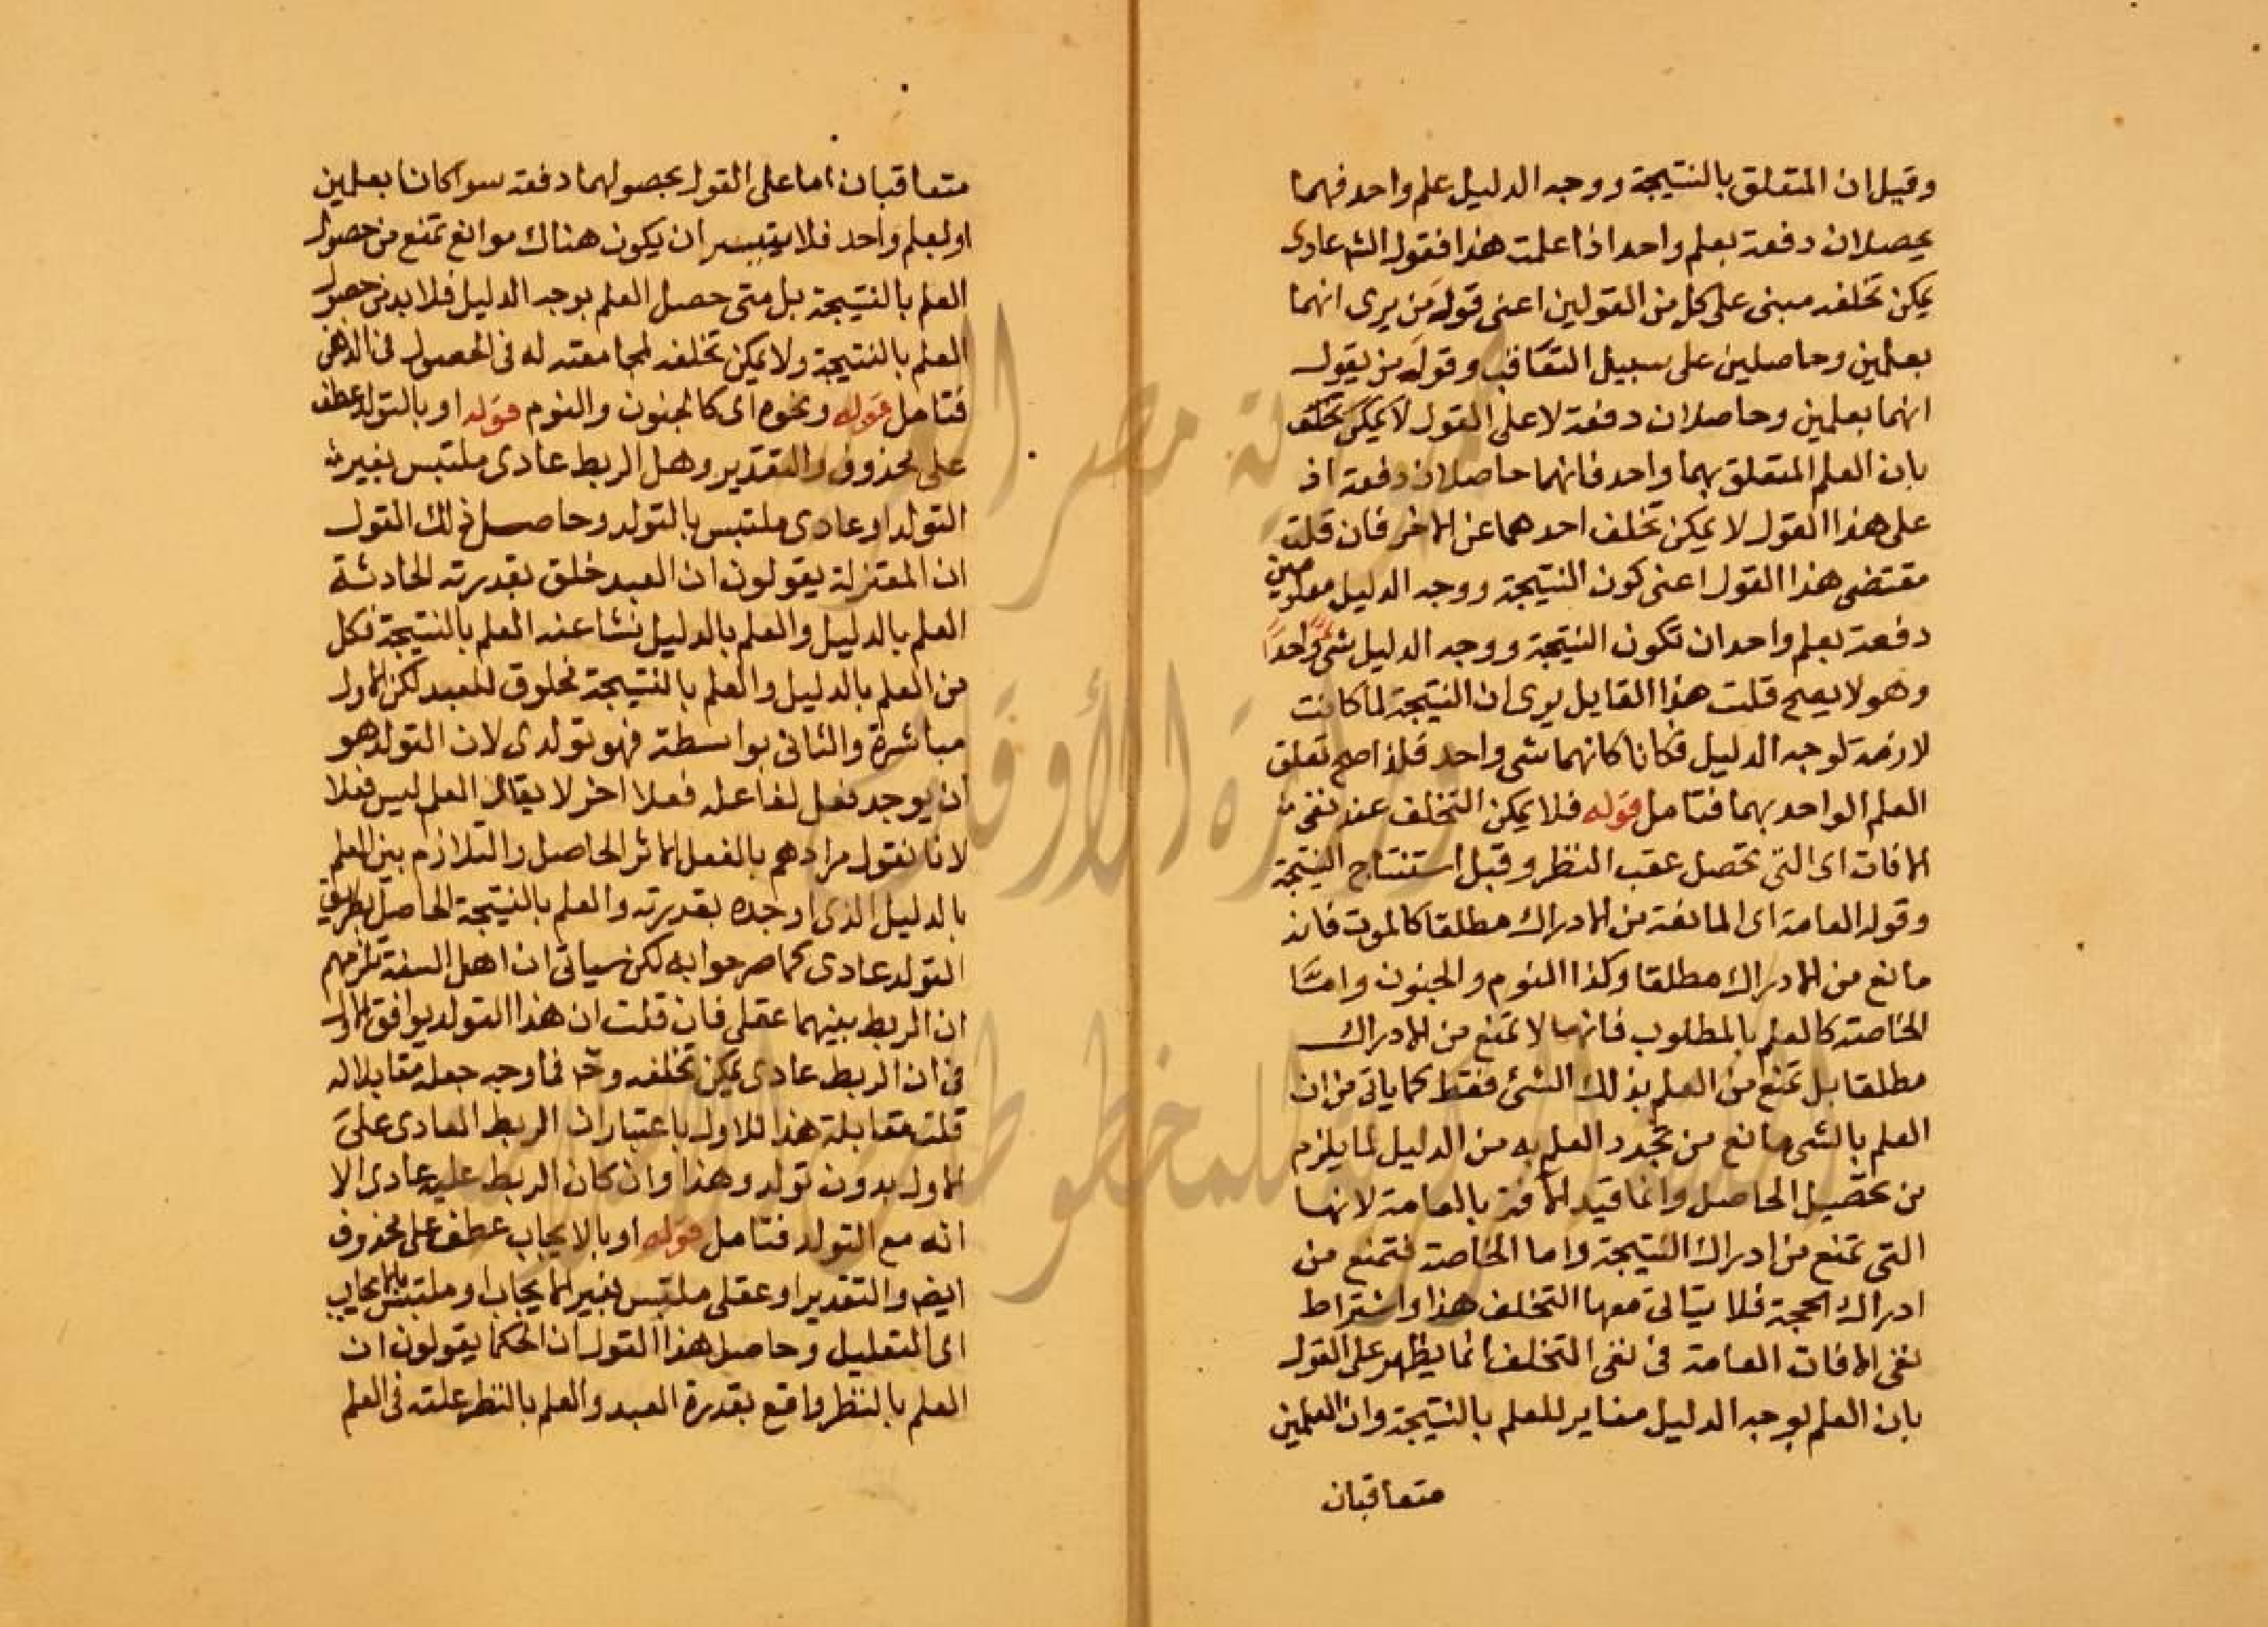 وقيل ان المتعلق بالنتيجة ووجه الدليل علم واحد فهما
يحصلان دفعة بعلم واحد اذا علمت هذا فقول الش عادى
يمكن تخلفه مبنى على كل من القولين اعنى قول من يرى انهما
بعلمين وحاصلين على سبيل التعاقب وقول من يقول
انهما بعلمين وحاصلان دفعة لا على القول لا يمكن تخلف
بان العلم المتعلق بهما واحد فانهما حاصلان دفعة اذ
على هذا القول لا يمكن تخلف احدهما عن الاخر فان قلت
مقتضى هذا القول اعنى كون النتيجة ووجه الدليل معلومين
دفعة بعلم واحد ان تكون النتيجة ووجه الدليل شئ واحدا
وهو لا يصح قلت هذا القايل يرى ان النتيجة لما كانت
لازمة لوجه الدليل فكانا كانهما شى واحد فلذا صح تعلق
العلم الواحد بهما فتامل قوله فلا يمكن التخلف عند نفى
الافات اى التى تحصل عقب النظر وقبل استنتاج النتيجة
وقوله العامة اى المانعة من الادراك مطلقا كالموت فانه
مانع من الادراك مطلقا وكذا النوم والجنون وامَّا
الخاصة كالعلم بالمطلوب فانها لا تمنع من الادراك
مطلقا بل تمنع من العلم بذلك الشئ فقط كما ياتى من ان
العلم بالشى مانع من تجدد العلم به من الدليل لما يلزم
من تحصيل الحاصل وانما قيد الآفة بالعامة لانها
التى تمنع من ادراك النتيجة واما الخاصة فتمنع من
ادراك الحجة فلا يتاتى معها التخلف هذا واشتراط
نفى الافات العامة فى نفى التخلف انما يظهر على القول
بان العلم بوجه الدليل مغاير للعلم بالنتيجة وان العلمين
متعاقبان
متعاقبان اما على القول بحصولهما دفعة سوا كانا بعلمين
او بعلم واحد فلا يتيسر ان يكون هناك موانع تمنع من حصول
العلم بالنتيجة بل متى حصل العلم بوجه الدليل فلا بد من حصول
العلم بالنتيجة ولا يمكن تخلفه لمجامعته له فى الحصول فى الذهن
فتامل قوله ونحوه اى كالجنون والنوم قوله او بالتولد عطف
على محذوف والتقدير وهل الربط عادى ملتبس بغير
التولد او عادى ملتبس بالتولد وحاصل ذلك القول
ان المعتزلة يقولون ان العبد خلق بقدرته الحادثة
العلم بالدليل والعلم بالدليل نشا عنه العلم بالنتيجة فكل
من العلم بالدليل والعلم بالنتيجة مخلوق للعبد لكن الاول
مباشرة والثانى بواسطة فهو تولدى لان التولد هو
ان يوجد فعل لفاعله فعلا اخر لا يقال العلم ليس فعلا
لانا نقول مرادهم بالفعل الاثر الحاصل والتلازم بين العلم
بالدليل الذى اوجده بقدرته والعلم بالنتيجة الحاصل بطريق
التولد عادى كما صرحوا به لكن سياتى ان اهل السنة تلزمهم
ان الربط بينهما عقلى فان قلت ان هذا التولد يوافق الاول
فى ان الربط عادى يمكن تخلفه وح فما وجه جعله مقابلا له
قلت مقابلة هذا للاول باعتبار ان الربط العادى على
الاول بدون تولد وهذا وان كان الربط عليه عادى الا
انه مع التولد فتامل قوله او بالايجاب عطف على محذوف
ايضه والتقدير او عقلى ملتبس بغير الايجاب او ملتبس بالايجاب
اى التعليل وحاصل هذا القول ان الحكما يقولون ان
العلم بالنظر واقع بقدرة العبد والعلم بالنظر علته فى العلم